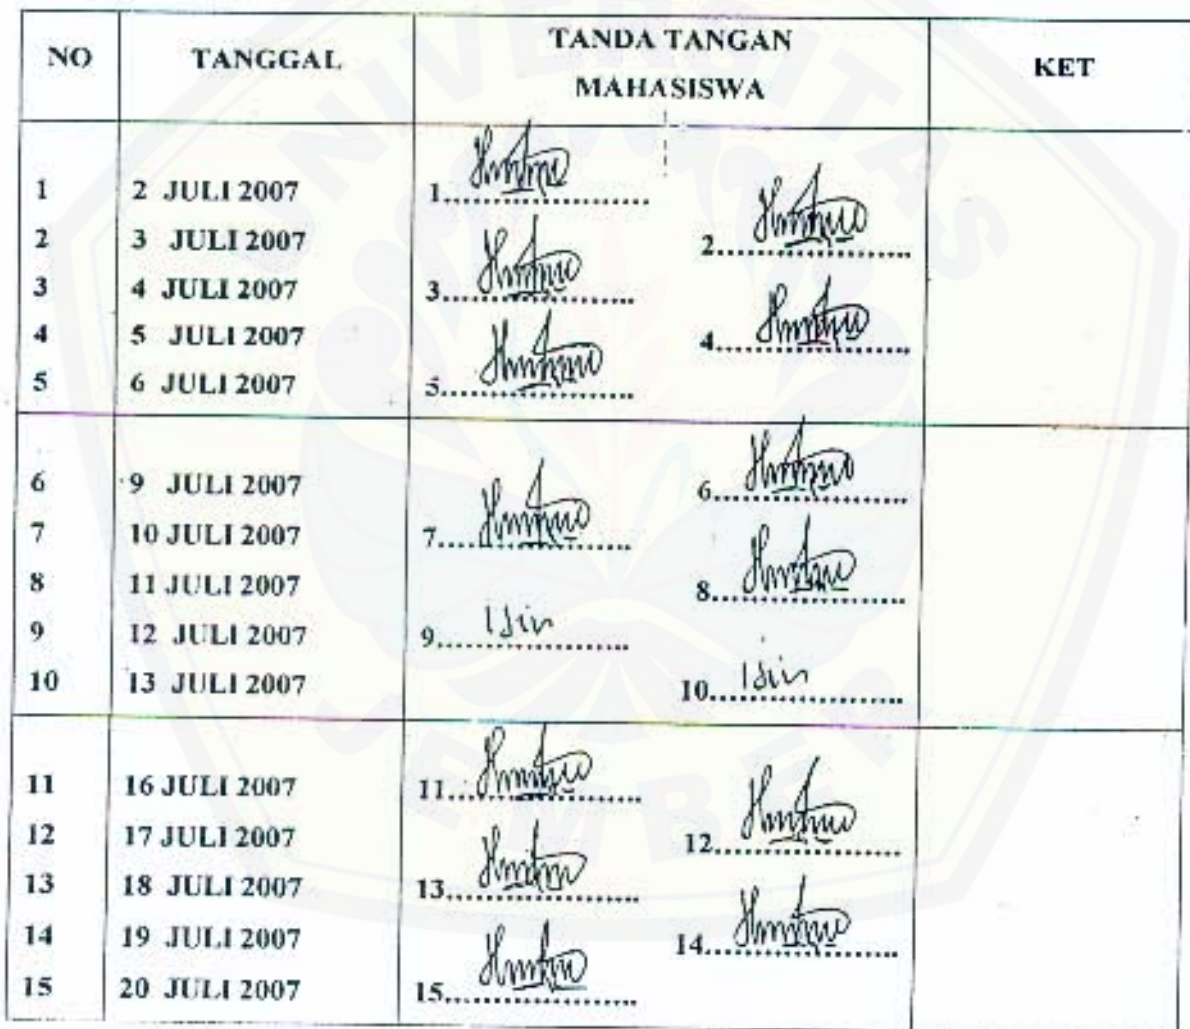 NO TANGGAL TANDA TANGAN MAHASISWA KET
1 2 JULI 2007 1
2 3 JULI 2007 2
3 4 JULI 2007 3
4 5 JULI 2007 4
5 6 JULI 2007 5
6 9 JULI 2007 6
7 10 JULI 2007 7
8 11 JULI 2007 8
9 12 JULI 2007 9 Isin
10 13 JULI 2007 10 Isin
11 16 JULI 2007 11
12 17 JULI 2007 12
13 18 JULI 2007 13
14 19 JULI 2007 14
15 20 JULI 2007 15
UNIVERSITAS
JEMBER